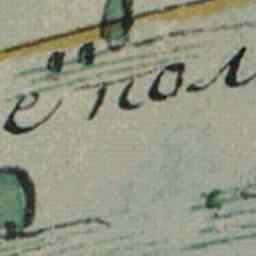 е пол